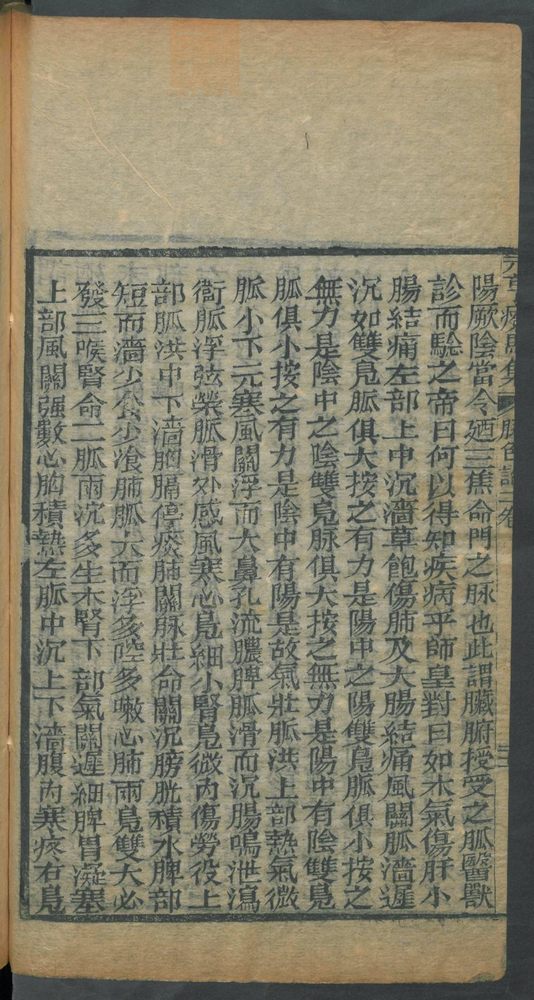 元亨療馬集 脉色論一卷 三
陽厥陰當令廼三焦命門之脉也此謂臟腑授受之脈醫獸
診而驗之帝曰何以得知疾病乎師皇對曰如木氣傷肝小
腸結痛左部上中沉濇草飽傷肺及大腸結痛風關脈濇遲
沉如雙鳧脈俱大按之有力是陽中之陽雙鳧脈俱小按之
無力是陰中之陰雙鳧脉俱大按之無力是陽中有陰雙鳧
脈俱小按之有力是陰中有陽是故氣壯脈洪上部熱氣微
脈小下元寒風關浮而大鼻孔流膿脾脈滑而沉腸鳴泄瀉
衛脈浮弦榮脈滑外感風寒心鳧細小腎鳧微內傷勞役上
部脈洪中下濇胸膈停痰肺關脉壯命關沉膀胱積水脾部
短而濇少食少飡肺脈大而浮多陸多嗽心肺兩鳧雙大必
發三喉腎命二脈兩沉多生木腎下部氣關遲細脾胃凝塞
上部風關强數心胸積熱左脈中沉上下濇腹內寒疼右鳧